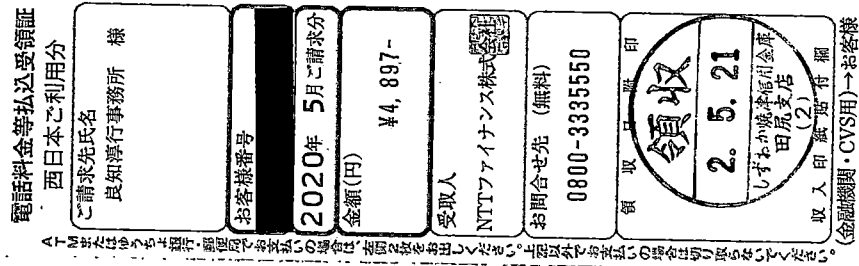 電話料金等払込受領証
西日本ご利用分
ご請求先氏名
良知淳行事務所 様
お客様番号
2020年 5月ご請求分
金額(円)
¥4,897-
受取人
NTTファイナンス株式会社
お問合せ先 (無料)
0800-3335550
領収日附印
領収
2.5.21
しずおか焼津信用金庫
田尻支店
(2)
収入印紙貼付欄
(金融機関・CVS用)→お客様
ATMまたはゆうちょ銀行・郵便局でお支払いの場合は、左側2枚をお出しください。上記以外でお支払いの場合は切り取らないでください。